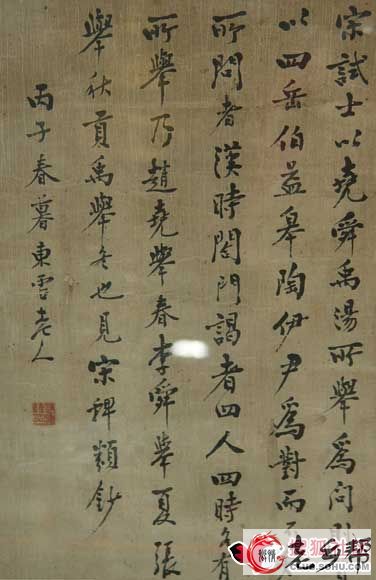 宗試士以堯舜禹湯所舉為問
以四岳伯益皋陶伊尹為對而
所問者漢時閤門謁者四人四時各有
所舉乃趙堯舉春李舜舉夏張
舉秋貢禹舉冬也見宋稗類鈔
丙子春暮東雲老人
老乡帮
CLUB.SOHU.COM